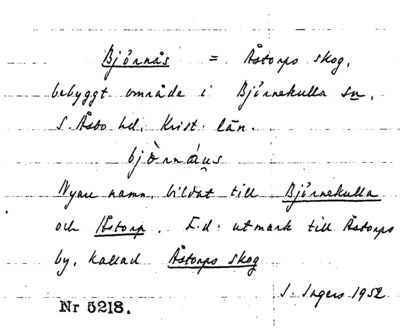 Björnås = Åstorps skog,
bebyggt område i Björnekulla sn,
S. Åsbo hd, Krist. län.
bjö̀rnáu̯s
Nyare namn, bildat till Björnekulla
och Åstorp. F.d. utmark till Åstorps
by, kallad Åstorps skog
I. Ingers 1952
Nr 5218.